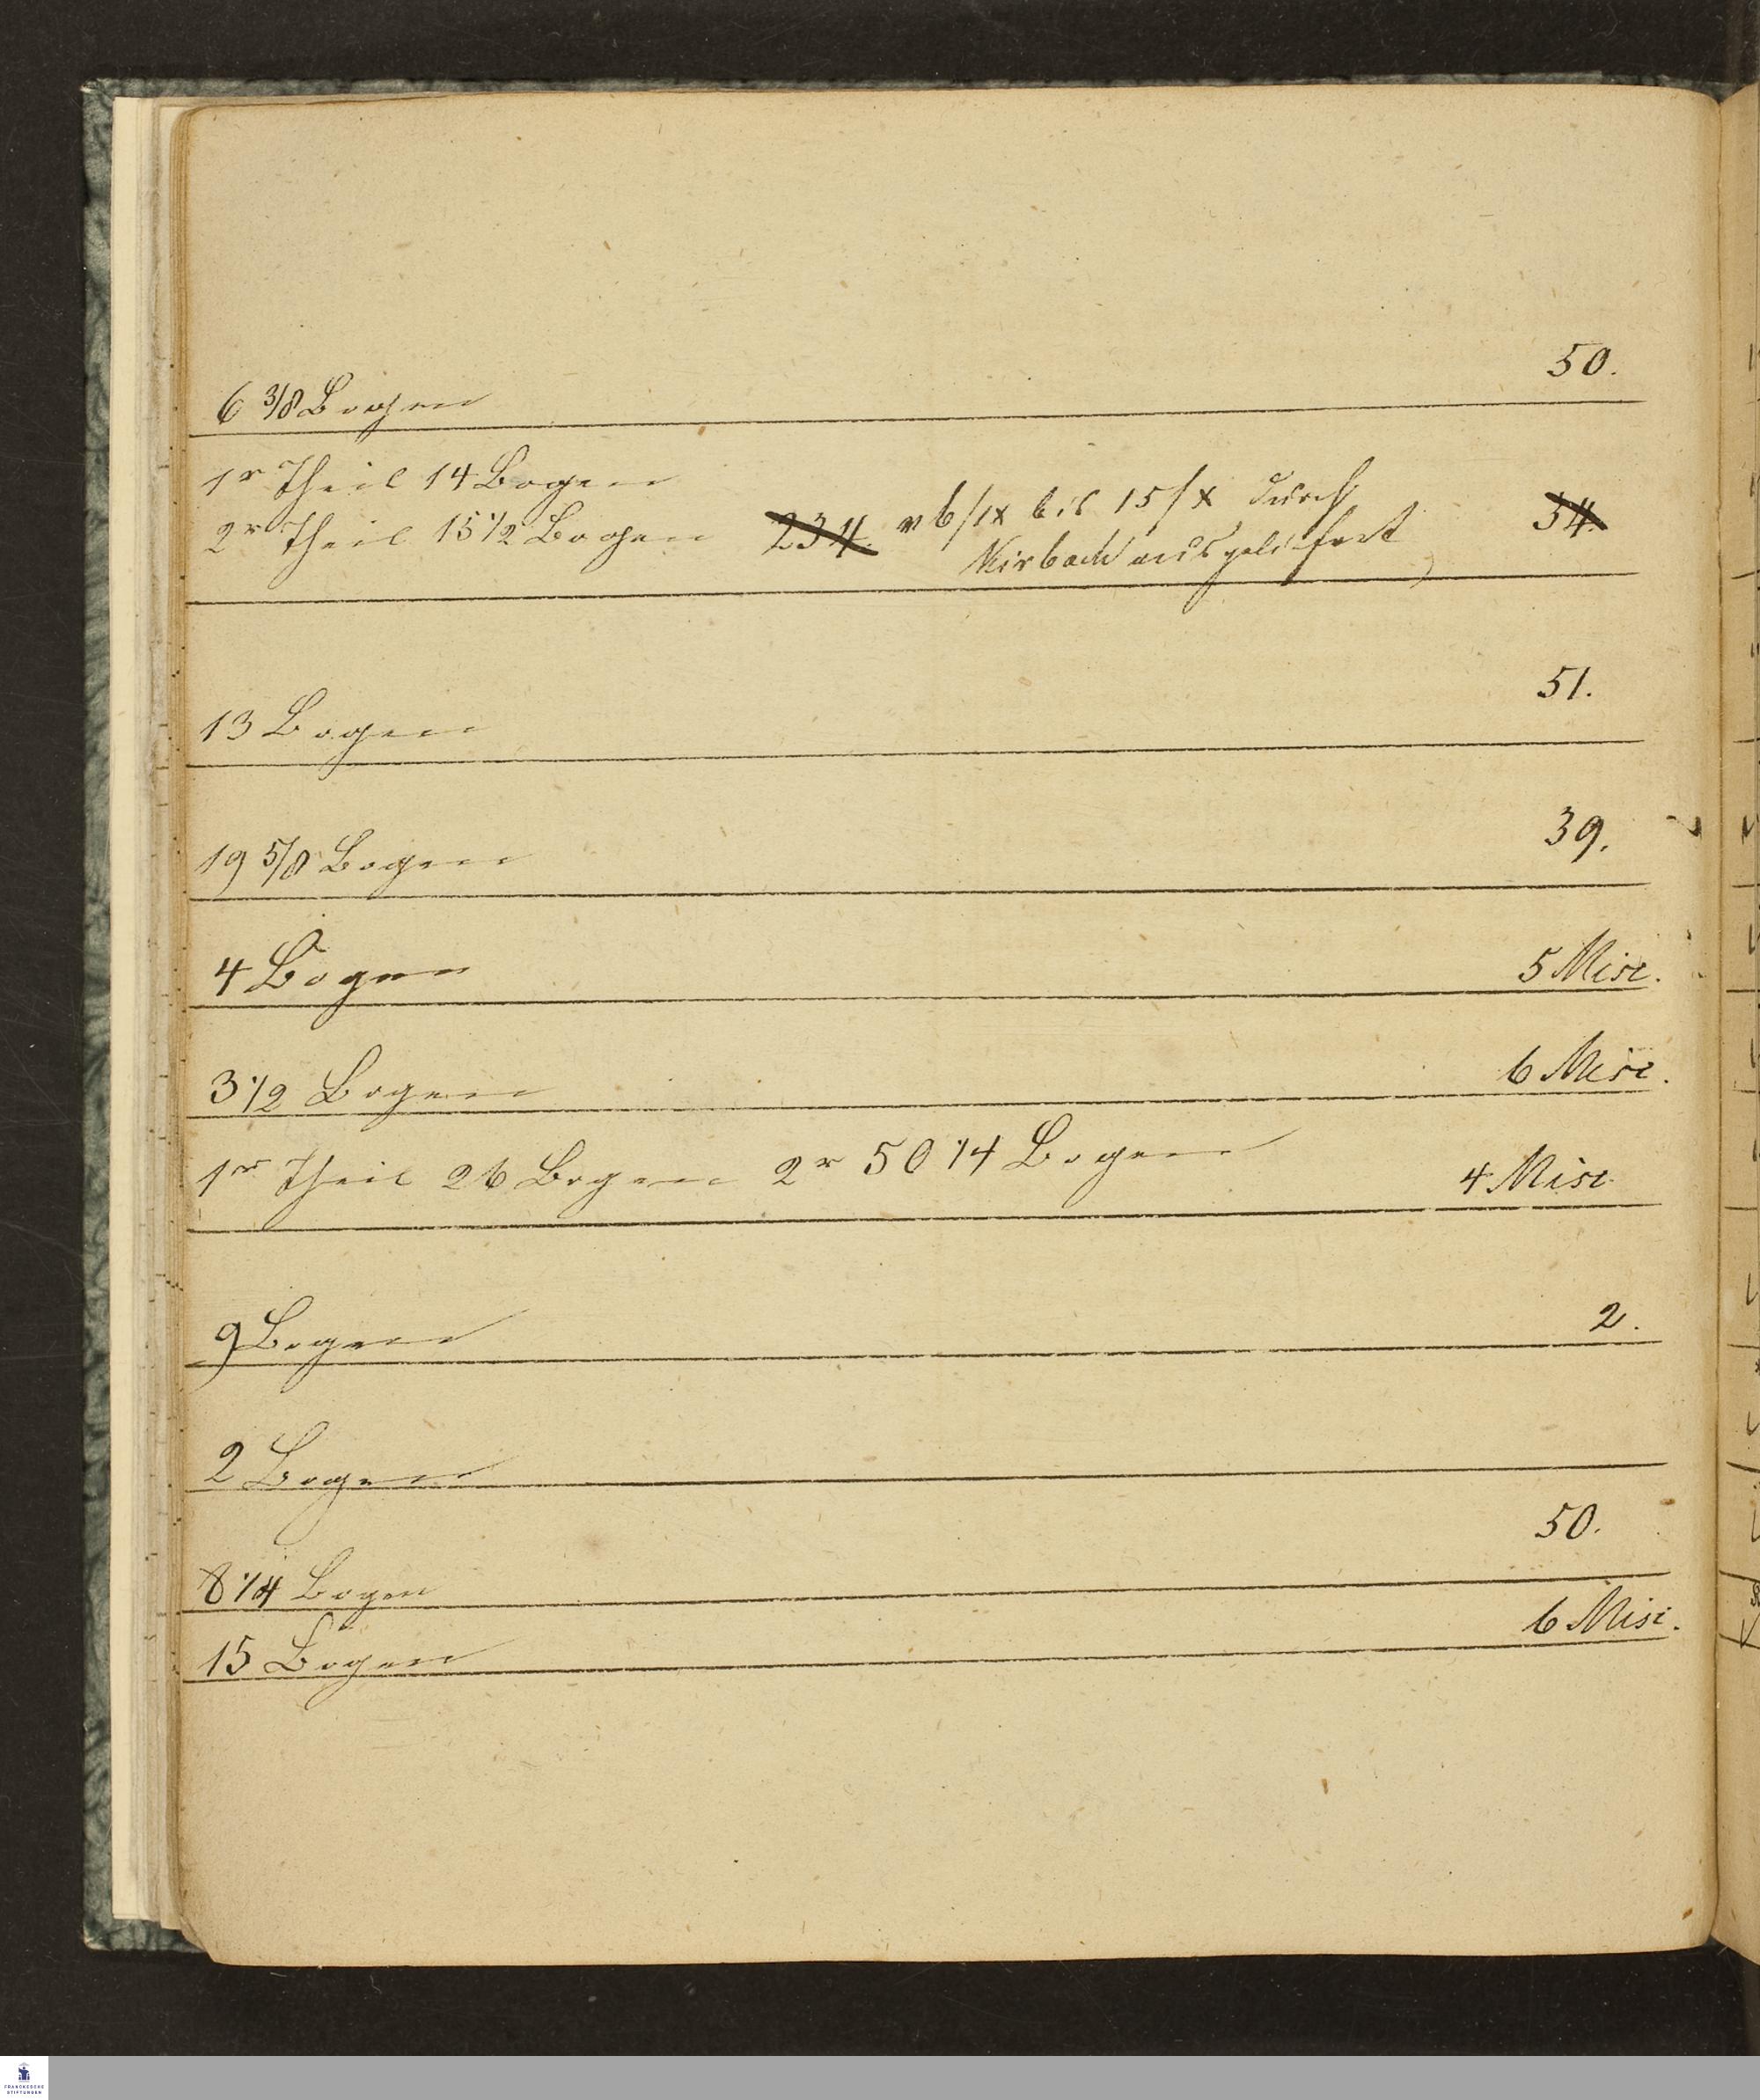 50.
6 3/8 Bogen
1r Theil 14 Bogen
2r Theil 15 1/2 Bogen 234. v 6/IX bis 15/X durch 34.
Kirbach ausgeliefert
51.
13 Bogen
39.
19 5/8 Bogen
4 Bogen 5 Misc.
3 1/2 Bogen 6 Misc.
1r Theil 26 Bogen 2r 50 1/4 Bogen 4 Misc.
9 Bogen 2.
2 Bogen
50.
8 1/4 Bogen
15 Bogen 6 Misc.
FRANCKESCHE
STIFTUNGEN